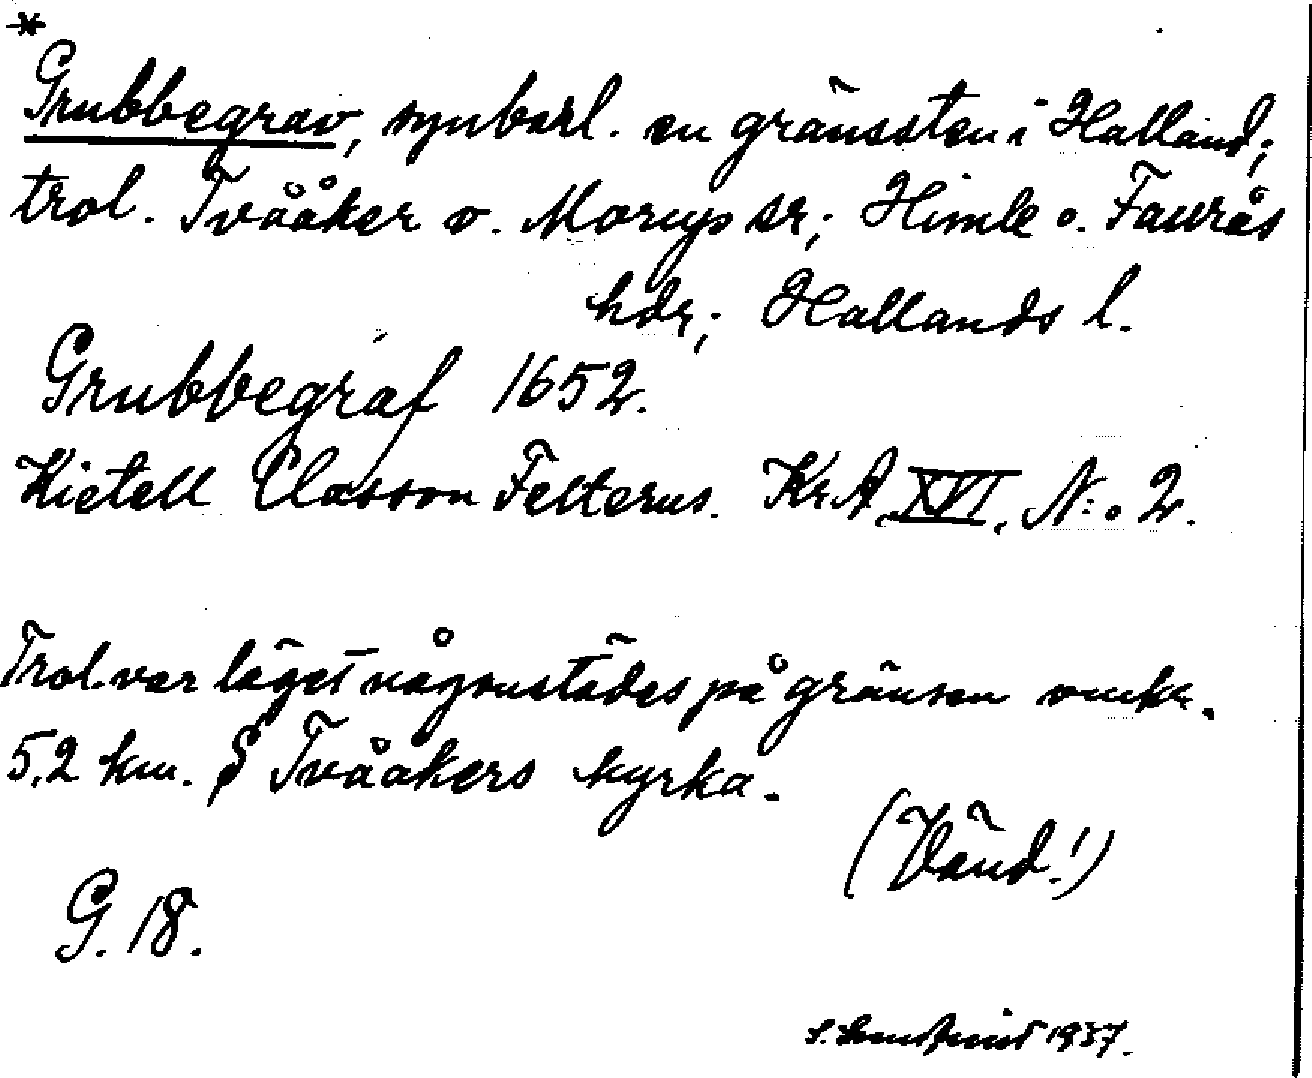 *
Grubbegrav, synbarl. en gränssten i Halland;
trol. Tvååker o. Morups sr; Himle o. Faurås
hdr; Hallands l.
Grubbegraf 1652.
Kietell Classon Felterus. Kr.A. XVI. N:o 2.
Trol. var läget någonstädes på gränsen omkr.
5,2 km. S Tvååkers kyrka.
(Vänd!)
G. 18.
1937.